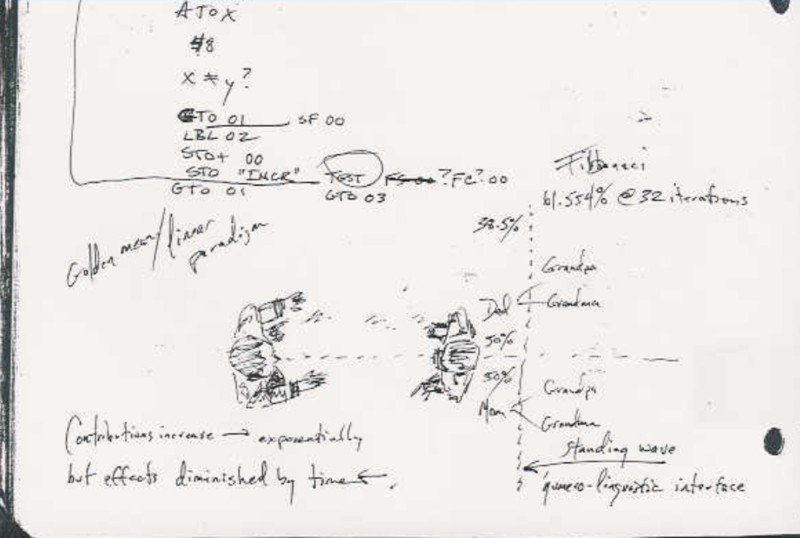 A TO X
X ≠ y?
GTO 01 SF 00
LBL 02
STO+ 00
STO "INCR" TEST FS 00 ? FC? 00
GTO 01 GTO 03
Fibbonaci
61.554% @ 32 iterations
Golden mean/linear
paradigm
38.5%
Grandpa
Dad Grandma
50%
50% Grandpa
Mom Grandma
Contributions increase → exponentially
but effects diminished by time ←.
standing wave
numero-linguistic interface